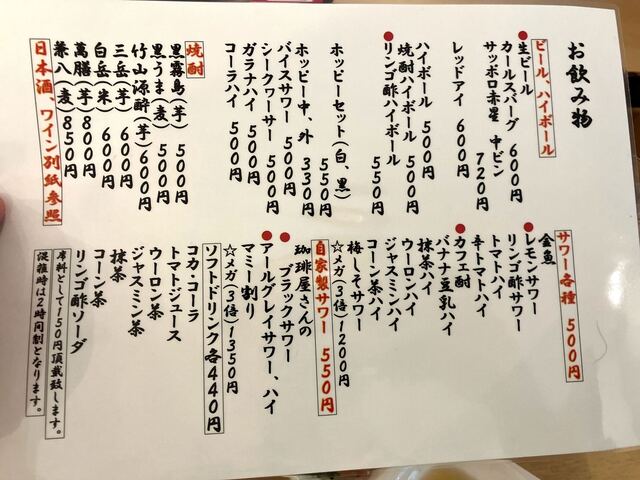 お飲み物
ビール、ハイボール
生ビール
カールスバーグ 600円
サッポロ赤星 中ビン
720円
レッドアイ 600円
ハイボール 500円
焼酎ハイボール 500円
リンゴ酢ハイボール
550円
ホッピーセット(白、黒)
550円
ホッピー中、外 330円
バイスサワー 500円
シークワーサー 500円
ガラナハイ 500円
コーラハイ 500円
焼酎
黒霧島(芋) 500円
黒うま(麦) 500円
竹山源酔(芋) 600円
三岳(芋) 600円
白岳(米) 600円
萬膳(芋) 800円
兼八(麦) 850円
日本酒、ワイン別紙参照
サワー各種 500円
金魚
レモンサワー
リンゴ酢サワー
トマトハイ
辛トマトハイ
カフェ酎
バナナ豆乳ハイ
抹茶ハイ
ウーロンハイ
ジャスミンハイ
コーン茶ハイ
梅しそサワー
☆メガ(3倍)1200円
自家製サワー 550円
珈琲屋さんの
ブラックサワー
アールグレイサワー、ハイ
マミー割り
☆メガ(3倍)1350円
ソフトドリンク各440円
コカ・コーラ
トマトジュース
ウーロン茶
ジャスミン茶
抹茶
コーン茶
リンゴ酢ソーダ
席料として150円頂戴致します。
混雑時は2時間制となります。